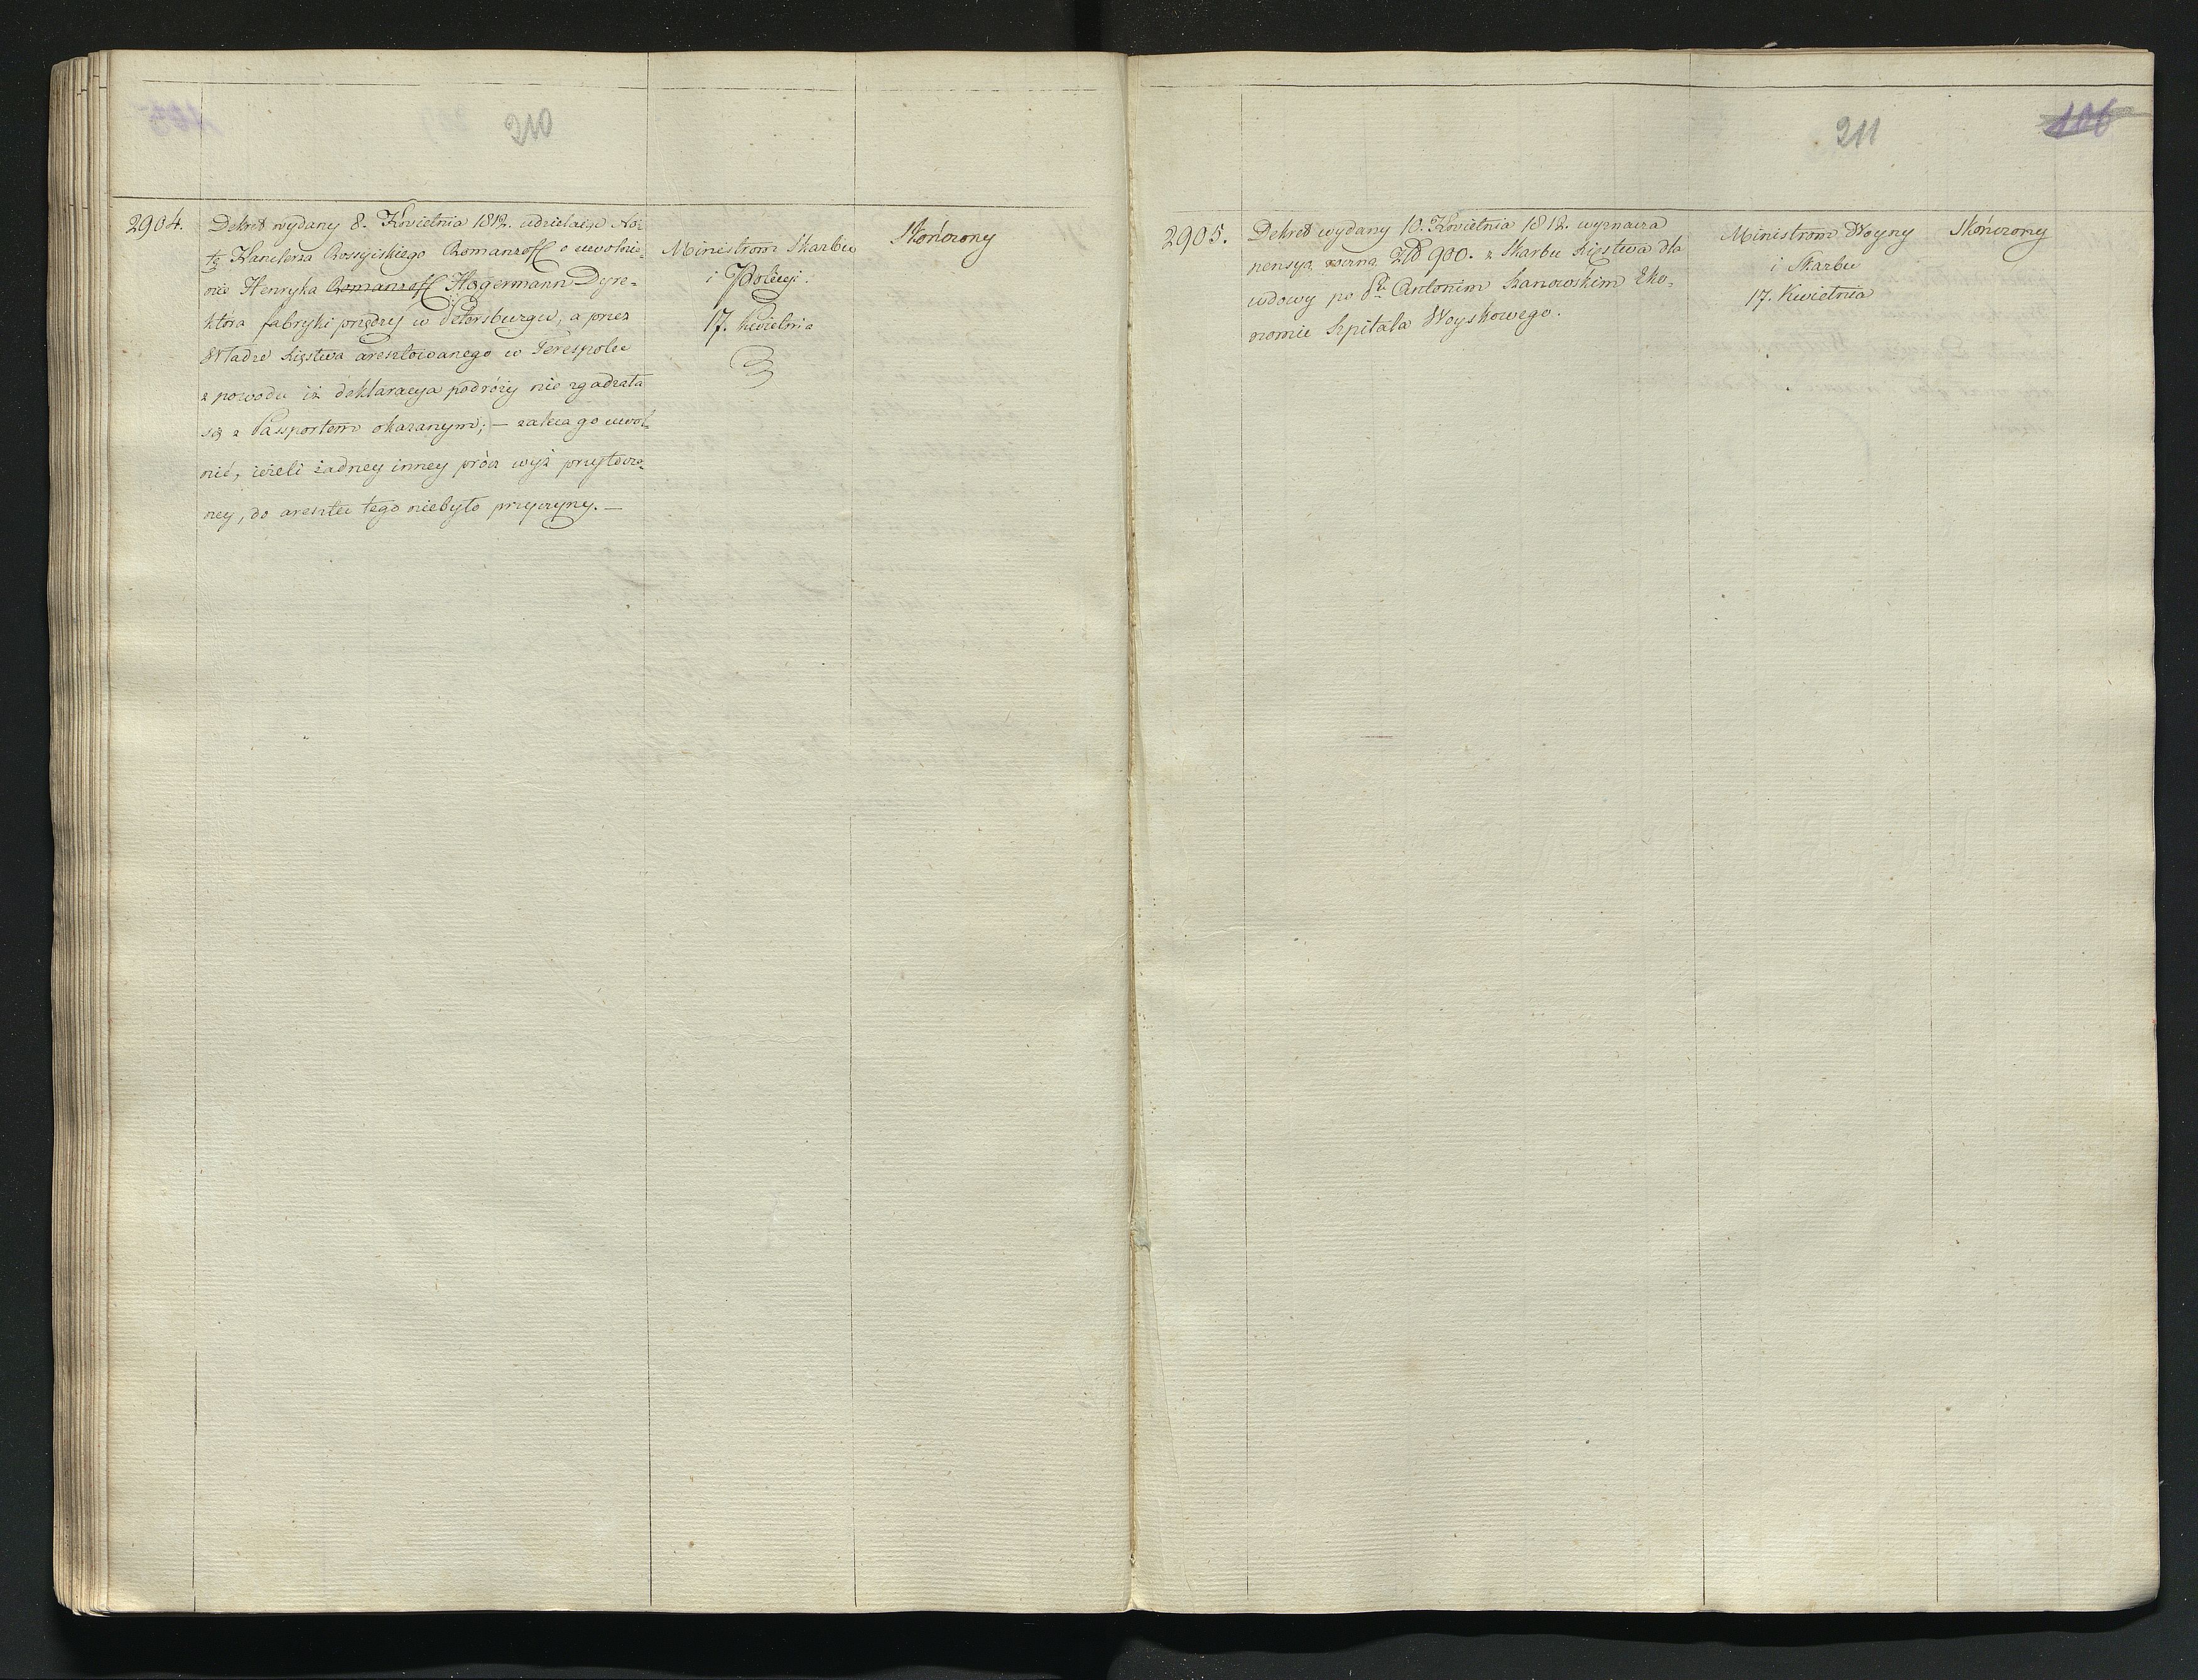 210
2904.
Dekret wydany 8. Kwietnia 1812. udzielaiąc No-
tę Kanclerza Rossyiskiego Romanzoff o uwolnie-
nie Henryka Romanzoff Hagermann Dyre-
ktora fabryki przędzy w Petersburgu, a przez
Władze Księstwa aresztowanego w Terespolu
z powodu iż deklaracya podróży nie zgadzała
się z Passportem okazanym; — zaleca go uwol-
nić, ieżeli żadney inney prócz wyż przytoczo-
ney, do aresztu tego niebyło przyczyny. —
Ministrom Skarbu
i Policyi.
17. Kwietnia
Skończony
211
106
2905.
Dekret wydany 10. Kwietnia 1812. wyznacza
pensyą roczną Zł 900. z Skarbu Księstwa dla
wdowy po Pu Antonim Szanowskim Eko-
nomie Szpitala Woyskowego.
Ministrom Woyny
i Skarbu
17. Kwietnia
Skończony